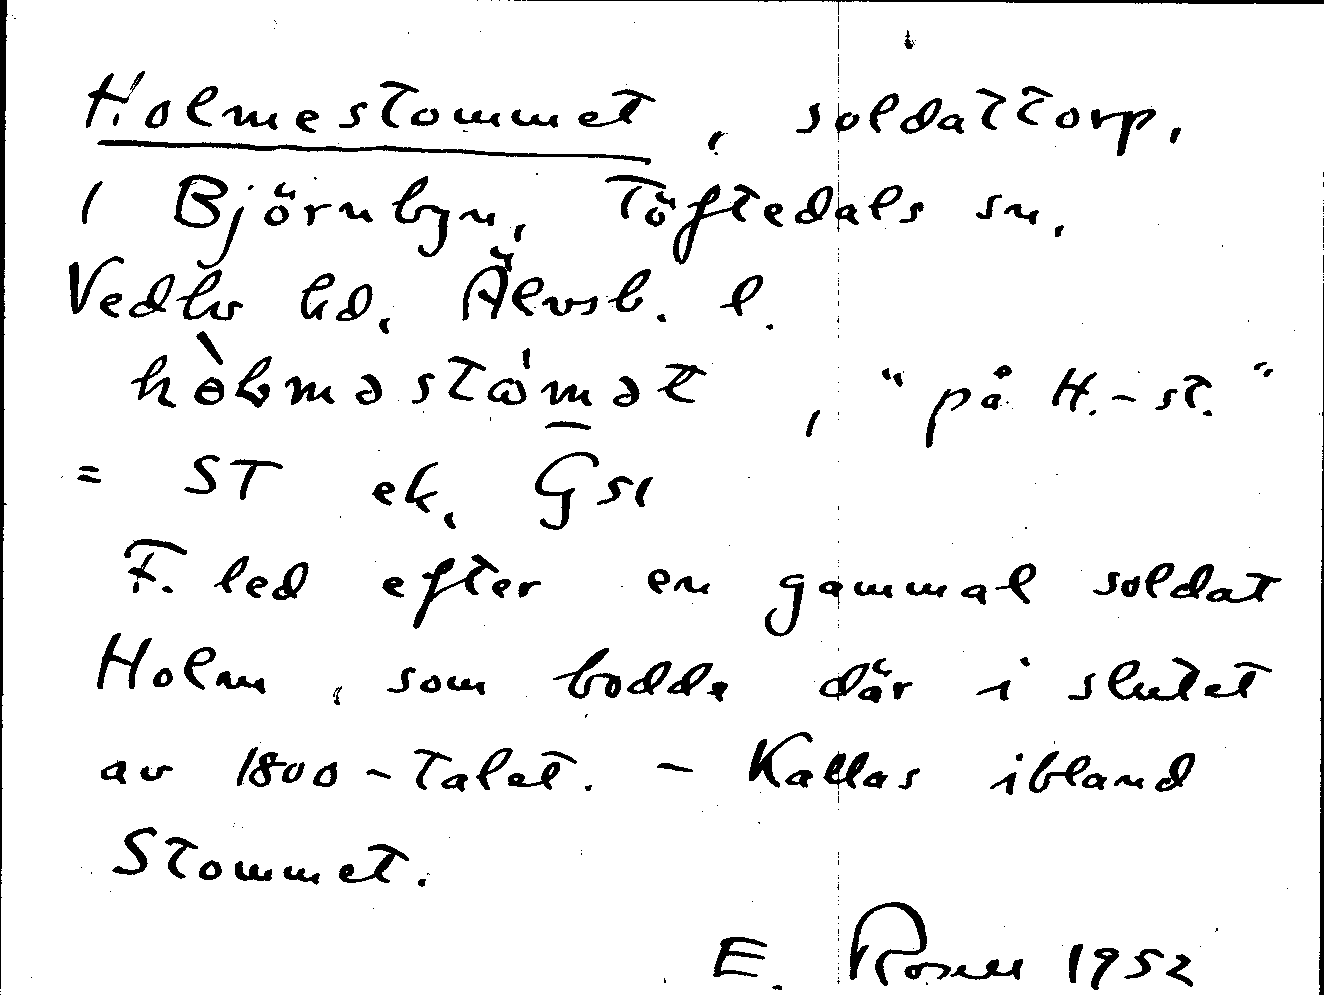 Holmestommet, soldattorp,
i Björnbyn, Töftedals sn,
Vedbo hd, Älvsb. l.
hòlmǝstɷ̀mǝt, "på H.-st."
= ST ek. Gsi
F. led efter en gammal soldat
Holm, som bodde där i slutet
av 1800-talet. - Kallas ibland
Stommet.
E. Rosell 1952